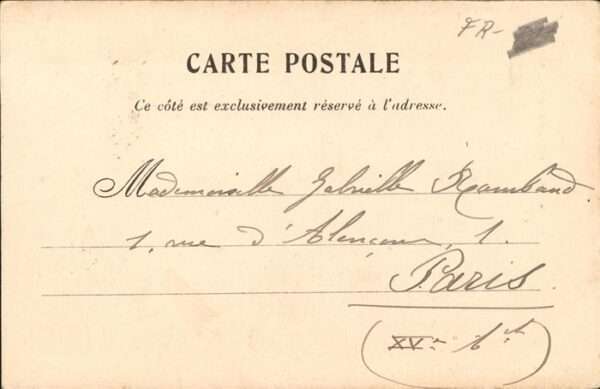 FR-
CARTE POSTALE
Ce côté est exclusivement réservé à l'adresse.
Mademoiselle Gabrielle Rambaud
1, rue d'Alençon, 1.
Paris
(XVe